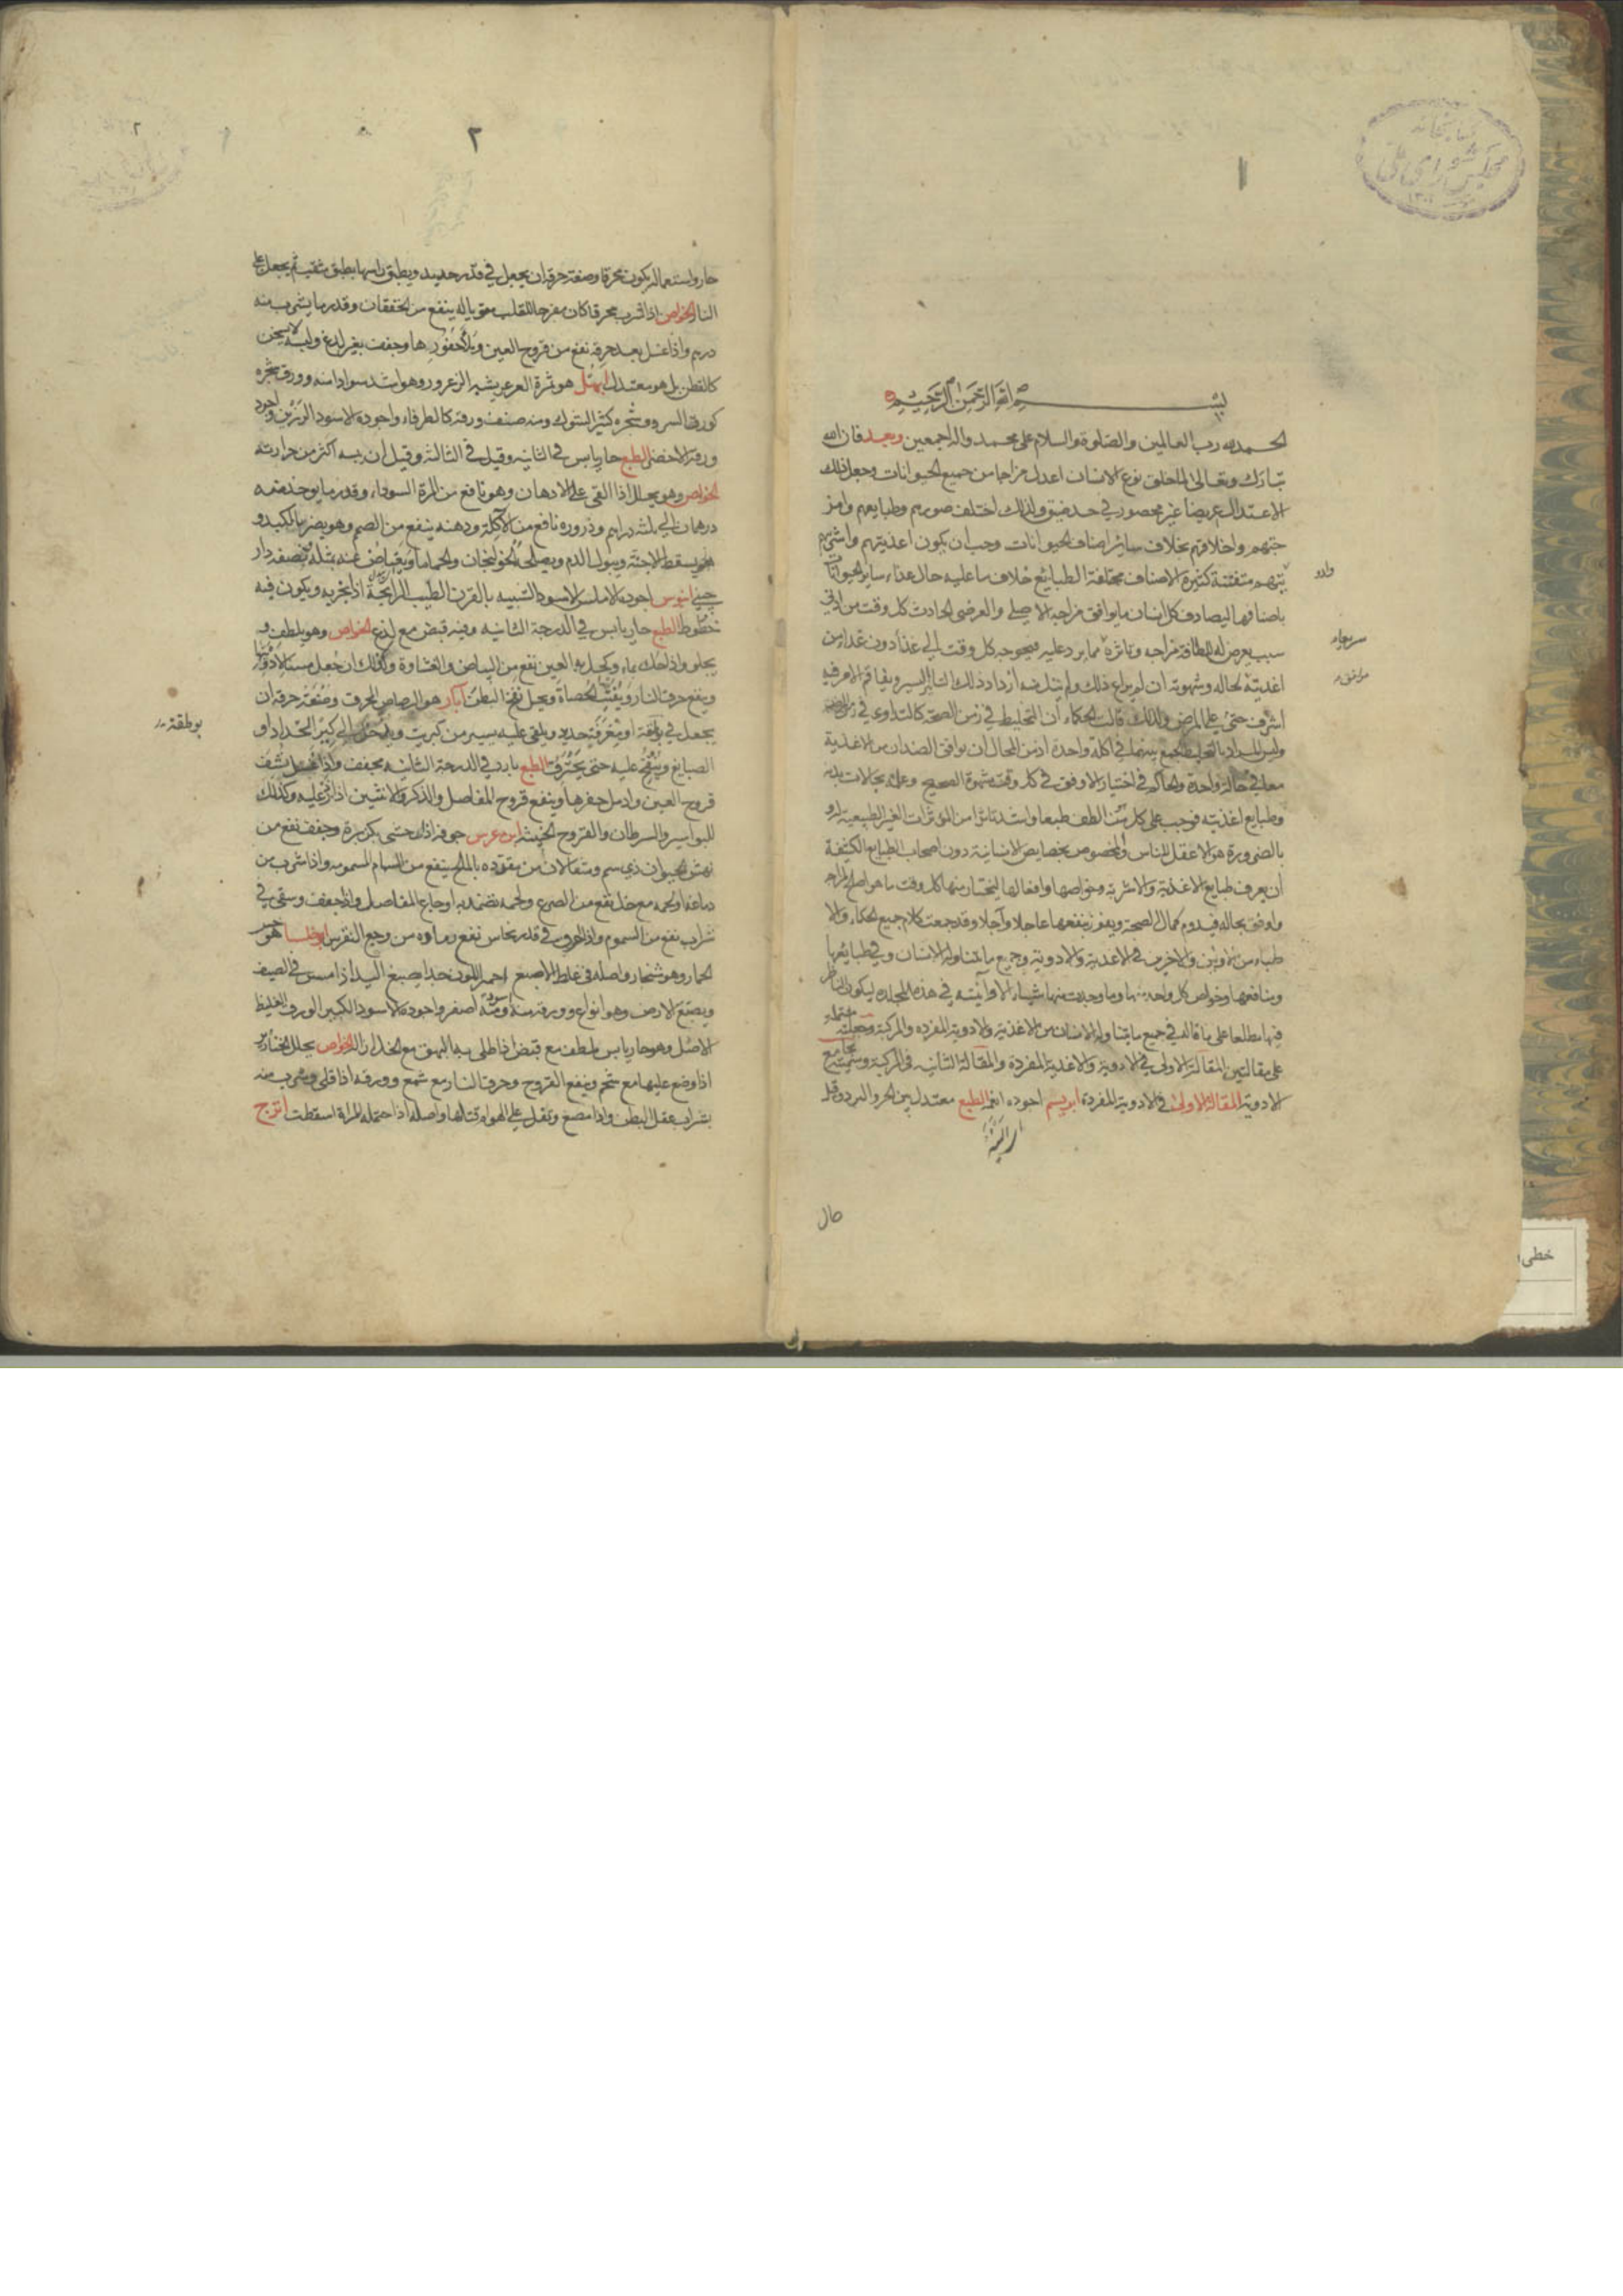 كتابخانه
مجلس شورای ملی
١
بسم الله الرحمن الرحيم
الحمد لله رب العالمين والصلوة والسلام على محمد واله اجمعين وبعد فان الله
تبارك وتعالى لما خلق نوع الانسان اعدل مزاجا من جميع الحيوانات وجعل ذلك
الاعتدال عريضا غير محصور في حد ضيق ولذلك اختلف صورهم وطبايعهم وامز
جتهم واخلاقهم بخلاف ساير اصناف الحيوانات وجب ان يكون اغذيتهم واشر
بتهم متفننة كثيرة الاصناف مختلفة الطبايع خلاف ما عليه حال غذاء ساير الحيوانات
باصنافها ليصادف كل انسان ما يوافق مزاجه الاصلي والعرضي الحادث كل وقت من ادنى
سبب يعرض له للطافة مزاجه وتاثره مما يرد عليه فيحوجه كل وقت الى غذاء دون غذاء من
اغذيته لحاله وشهوته ان لم يراع ذلك ازداد ذلك التاثير اليسير وتفاقم الامر فيه
اشرف حتى على المرض ولذلك قالت الحكماء ان التخليط في زمن الصحة كالتداوي في زمن المرض
وليس المراد بالتخليط الجمع بينهما في اكلة واحدة اذ من المحال ان يوافق الضدان من الاغذية
معا في حالة واحدة والحاكم في اختيار الاوفق في كل وقت شهوة الصحيح وعلمه بحالات بدنه
وطبايع اغذيته فوجب على كل من الطف طبعا واشد تاثرا من المؤثرات الغير الطبيعية
بالضرورة هو الاعقل للناس والمخصوص بخصايص الانسانية دون اصحاب الطبايع الكثيفة
ان يعرف طبايع الاغذية والاشربة وخواصها وافعالها ليختار منها كل وقت ما هو اصلح لمزاجه
واوفق بحاله فيدوم كمال الصحة ويفوز بنفعها عاجلا وآجلا وقد جمعت كلام جميع الحكماء والا
طباء من الاولين والاخرين في الاغذية والادوية وجميع ما يتناوله الانسان وفي طبايعها
ومنافعها وخواص كل واحد منها وما وجدت منها شيئا الا وأثبته في هذه المجلده ليكون الناظر
فيها مطلعا على ما قالت في جميع ما يتناوله الانسان من الاغذية والادوية المفرده والمركبة وجعلته مشتملة
على مقالتين المقالة الاولى في الادوية والاغذية المفردة والمقالة الثانيه في المركبة وسميته بجامع
الادوية المقالة الاولى في الادوية المفردة ابريسم اجوده انعمه الطبع معتدل بين الحر والبرد وقيل
حار
٢
حار واستعماله يكون محرقا وصفة حرقه ان يجعل في قدر حديد ويطبق راسها بطبق مثقب ثم يجعل على
النار الخواص اذا شرب محرقا كان مفرحا للقلب مقويا له ينفع من الخفقان وقدر ما يشرب منه
درهم واذا غسل بعد حرقه نفع من قروح العين ويملأ حفورها وجفف بغير لدغ ولبسه لا يسخن
كالقطن بل هو معتدل ابهل هو ثمرة العرعر يشبه الزعرور وهو اشد سوادا منه وورق شجره
كورق السرو وشجره كثير الشوك ومنه صنف ورقه كالطرفاء واجوده الاسود الرزين واجود
ورقه الاخضر الطبع حار يابس في الثانيه وقيل في الثالثة وقيل ان يبسه اكثر من حرارته
الخواص وهو يحلل اذا القي على الادهان وهو نافع من المرة السوداء وقدر ما يوخذ منه
درهمان الى ثلثه دراهم وذروره نافع من الآكلة ودهنه ينفع من الصمم وهو يضر بالكبد و
يسقط الاجنة ويبول الدم ويصلحه الخولنجان والحماما ويعتاض عنه بمثله ونصفه دار
صيني ابنوس اجوده الاملس الاسود الشبيه بالقرن الطيب الرايحة اذا بخر به ويكون فيه
خطوط الطبع حار يابس في الدرجة الثانيه وفيه قبض مع لذع الخواص وهو يلطف و
يجلو واذا حك بماء وكحل به العين نفع من البياض والغشاوة وكذلك ان جعل مسنا لادوية
وينفع حرق النار ويفتت الحصاة ويحل نفخ البطن آبار هو الرصاص المحرق وصنعة حرقه ان
يجعل في بوتقة او مغرفة حديد ويلقى عليه يسير من كبريت ويدخل الى كير الحداد او
الصايغ وينفخ عليه حتى يحترق الطبع بارد في الدرجة الثانيه يجفف واذا غسل نشف
قروح العين وادمل حفرها وينفع قروح المفاصل والذكر والانثيين اذا ذر عليه وكذلك
للبواسير والسرطان والقروح الخبيثه ابن عرس جوفه اذا حشى بكزبرة وجفف نفع من
نهش الحيوان ذي سم ومثقالان من مقدده بالملح ينفع من السهام المسمومه واذا شرب من
دماغه ولحمه مع خل نفع من الصرع ولحمه تضمد به اوجاع المفاصل واذا جفف وسقي في
شراب نفع من السموم واذا احرق في قدر نحاس نفع رماده من وجع النقرس ابوخلسا هو خس
الحمار وهو شنجار واصله في غلظ الاصبع احمر اللون جدا يصبغ اليد اذا مس في الصيف
ويصبغ الارض وهو انواع وورقه منه اسود ومنه اصفر واجوده الاسود الكبير الورق الغليظ
الاصل وهو حار يابس ملطف مع قبض اذا طلي به البهق مع الخل ازاله الخواص يحلل الخنازير
اذا وضع عليها مع شحم وينفع القروح وحرق النار مع شمع وورقه اذا قلي وشرب منه
بشراب عقل البطن واذا مضغ وتفل على الهوام قتلها واصله اذا احتمله المراة اسقطت اترج
بوطقة
خطی